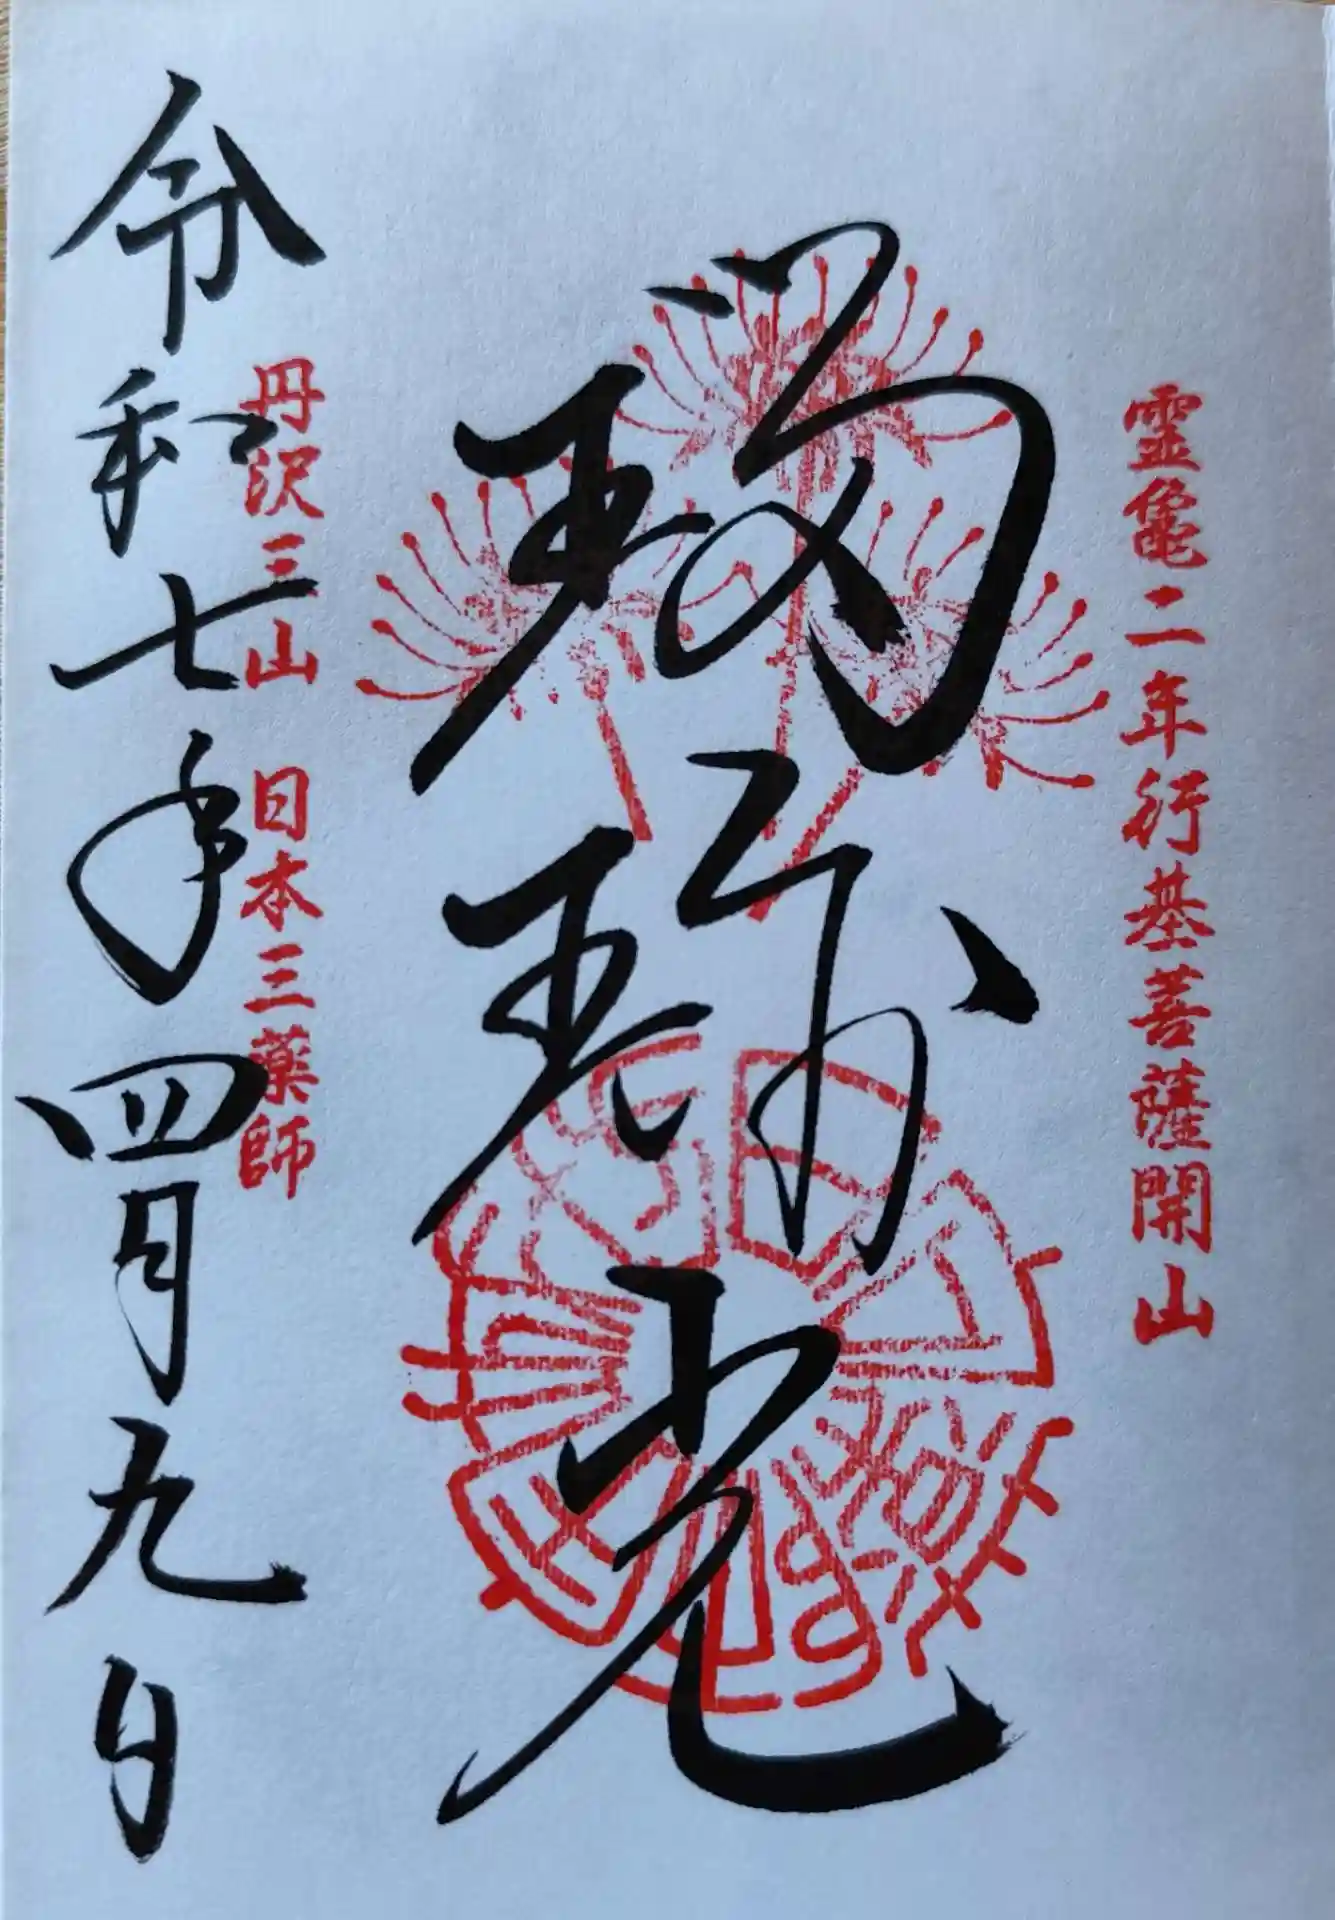 霊亀二年行基菩薩開山
瑠璃光
丹沢三山 日本三薬師
令和七年四月九日